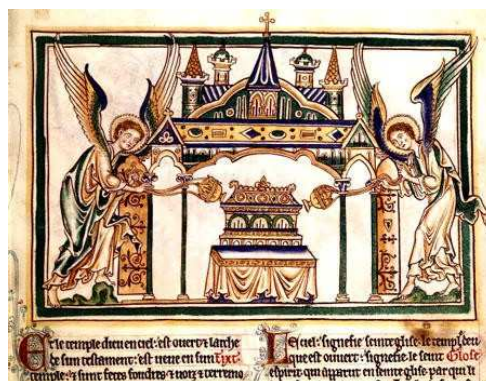 Et le temple dieu en ciel: est ouert z larche
de sun testament: est ueue en sun tixt:
temple: z sunt fetes foudres z uoiz z terremo
Le ciel: signefie seinte glise. le temple deu
que est ouuert: signefie le seint Glose
espirit qui apparut en seinte glise par qui li